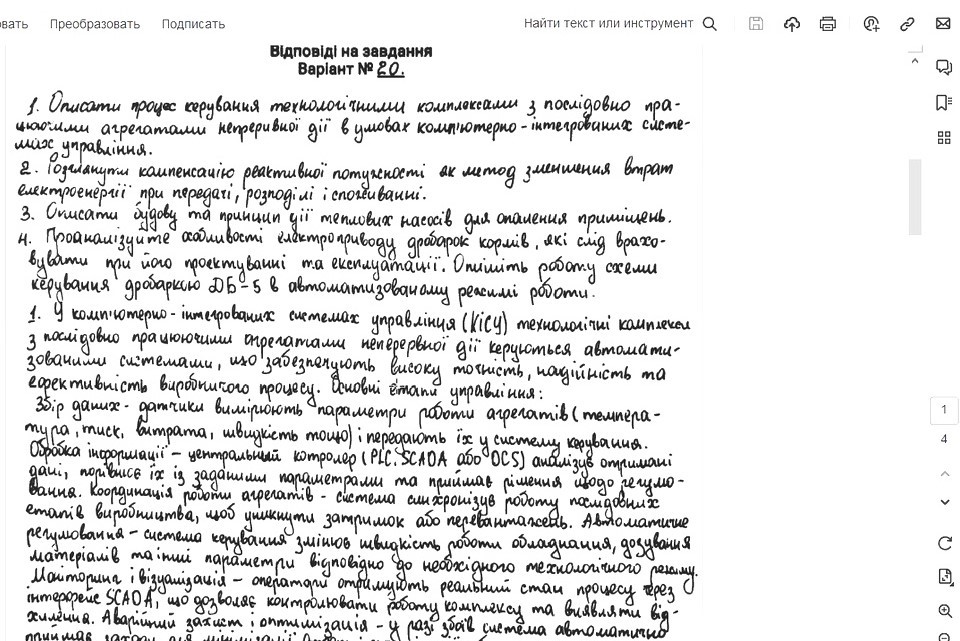 вать Преобразовать Подписать Найти текст или инструмент
Відповіді на завдання
Варіант № 20.
1. Описати процес керування технологічними комплексами з послідовно пра-
цюючими агрегатами непреривної дії в умовах комп'ютерно-інтегрованих систе-
мах управління.
2. Розглянути компенсацію реактивної потужності як метод зменшення втрат
електроенергії при передачі, розподілі і споживанні.
3. Описати будову та принцип дії теплових насосів для опалення приміщень.
4. Проаналізуйте особливості електроприводу дробарок кормів, які слід врахо-
вувати при його проєктуванні та експлуатації. Опишіть роботу схеми
керування дробаркою ДБ-5 в автоматизованому режимі роботи.
1. У комп'ютерно-інтегрованих системах управління (КІСУ) технологічні комплекси
з послідовно працюючими агрегатами неперервної дії керуються автомати-
зованими системами, що забезпечують високу точність, надійність та
ефективність виробничого процесу. Основні етапи управління:
Збір даних - датчики вимірюють параметри роботи агрегатів (темпера-
тура, тиск, витрата, швидкість тощо) і передають їх у систему керування.
Обробка інформації – центральний котролер (PLC, SCADA або DCS) аналізує отримані
дані, порівнює їх із заданими параметрами та приймає рішення щодо регулю-
вання. Координація роботи агрегатів - система синхронізує роботу послідовних
етапів виробництва, щоб уникнути затримок або перевантажень. Автоматичне
регулювання – система керування змінює швидкість роботи обладнання, дозування
матеріалів та інші параметри відповідно до необхідного технологічного режиму.
Моніторинг і візуалізація – оператори отримують реальний стан процесу через
інтерфейс SCADA, що дозволяє контролювати роботу комплексу та виявляти від-
хилення. Аварійний захист і оптимізація – у разі збоїв система автоматично
приймає заходи для мінімізації
1
4